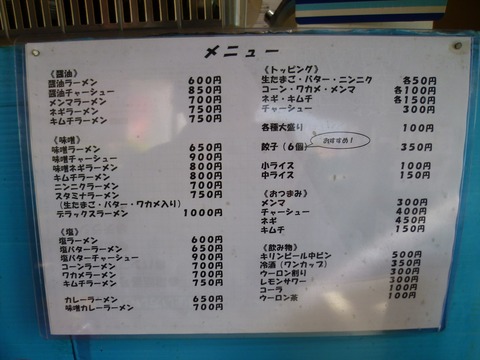 メニュー
《醤油》
醤油ラーメン 600円
醤油チャーシュー 850円
メンマラーメン 700円
ネギラーメン 750円
キムチラーメン 750円
《味噌》
味噌ラーメン 650円
味噌チャーシュー 900円
味噌ネギラーメン 800円
キムチラーメン 800円
ニンニクラーメン 700円
スタミナラーメン 750円
(生たまご・バター・ワカメ入り)
デラックスラーメン 1000円
《塩》
塩ラーメン 600円
塩バターラーメン 650円
塩バターチャーシュー 900円
コーンラーメン 700円
ワカメラーメン 700円
キムチラーメン 750円
カレーラーメン 650円
味噌カレーラーメン 700円
《トッピング》
生たまご・バター・ニンニク 各50円
コーン・ワカメ・メンマ 各100円
ネギ・キムチ 各150円
チャーシュー 300円
各種大盛り 100円
餃子(6個) おすすめ! 350円
小ライス 100円
中ライス 150円
《おつまみ》
メンマ 300円
チャーシュー 400円
ネギ 450円
キムチ 150円
《飲み物》
キリンビール中ビン 500円
冷酒(ワンカップ) 350円
ウーロン割り 300円
レモンサワー 300円
コーラ 100円
ウーロン茶 100円